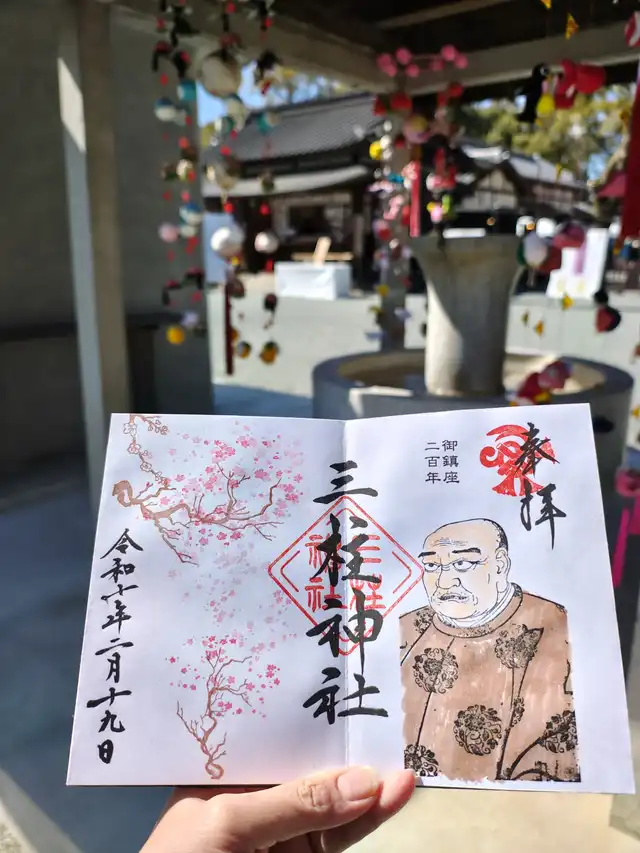 奉拝
御鎮座
二百年
三柱神社
三柱
神社
令和七年二月十九日